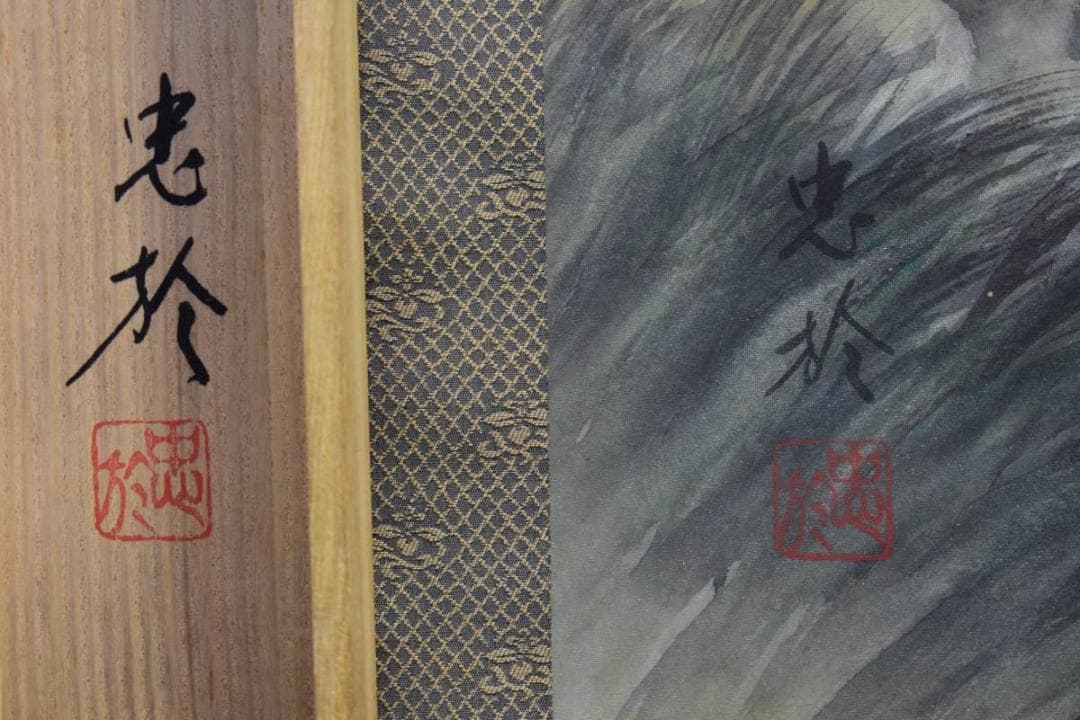 忠於
忠於
忠於
忠於